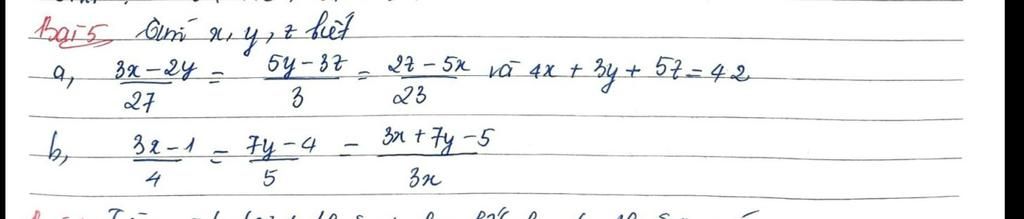 Bài 5 Tìm x, y, z biết
a, (3x-2y)/27 = (5y-3z)/3 = (2z-5x)/23 và 4x + 3y + 5z = 42
b, (3x-1)/4 = (7y-4)/5 = (3x+7y-5)/3x